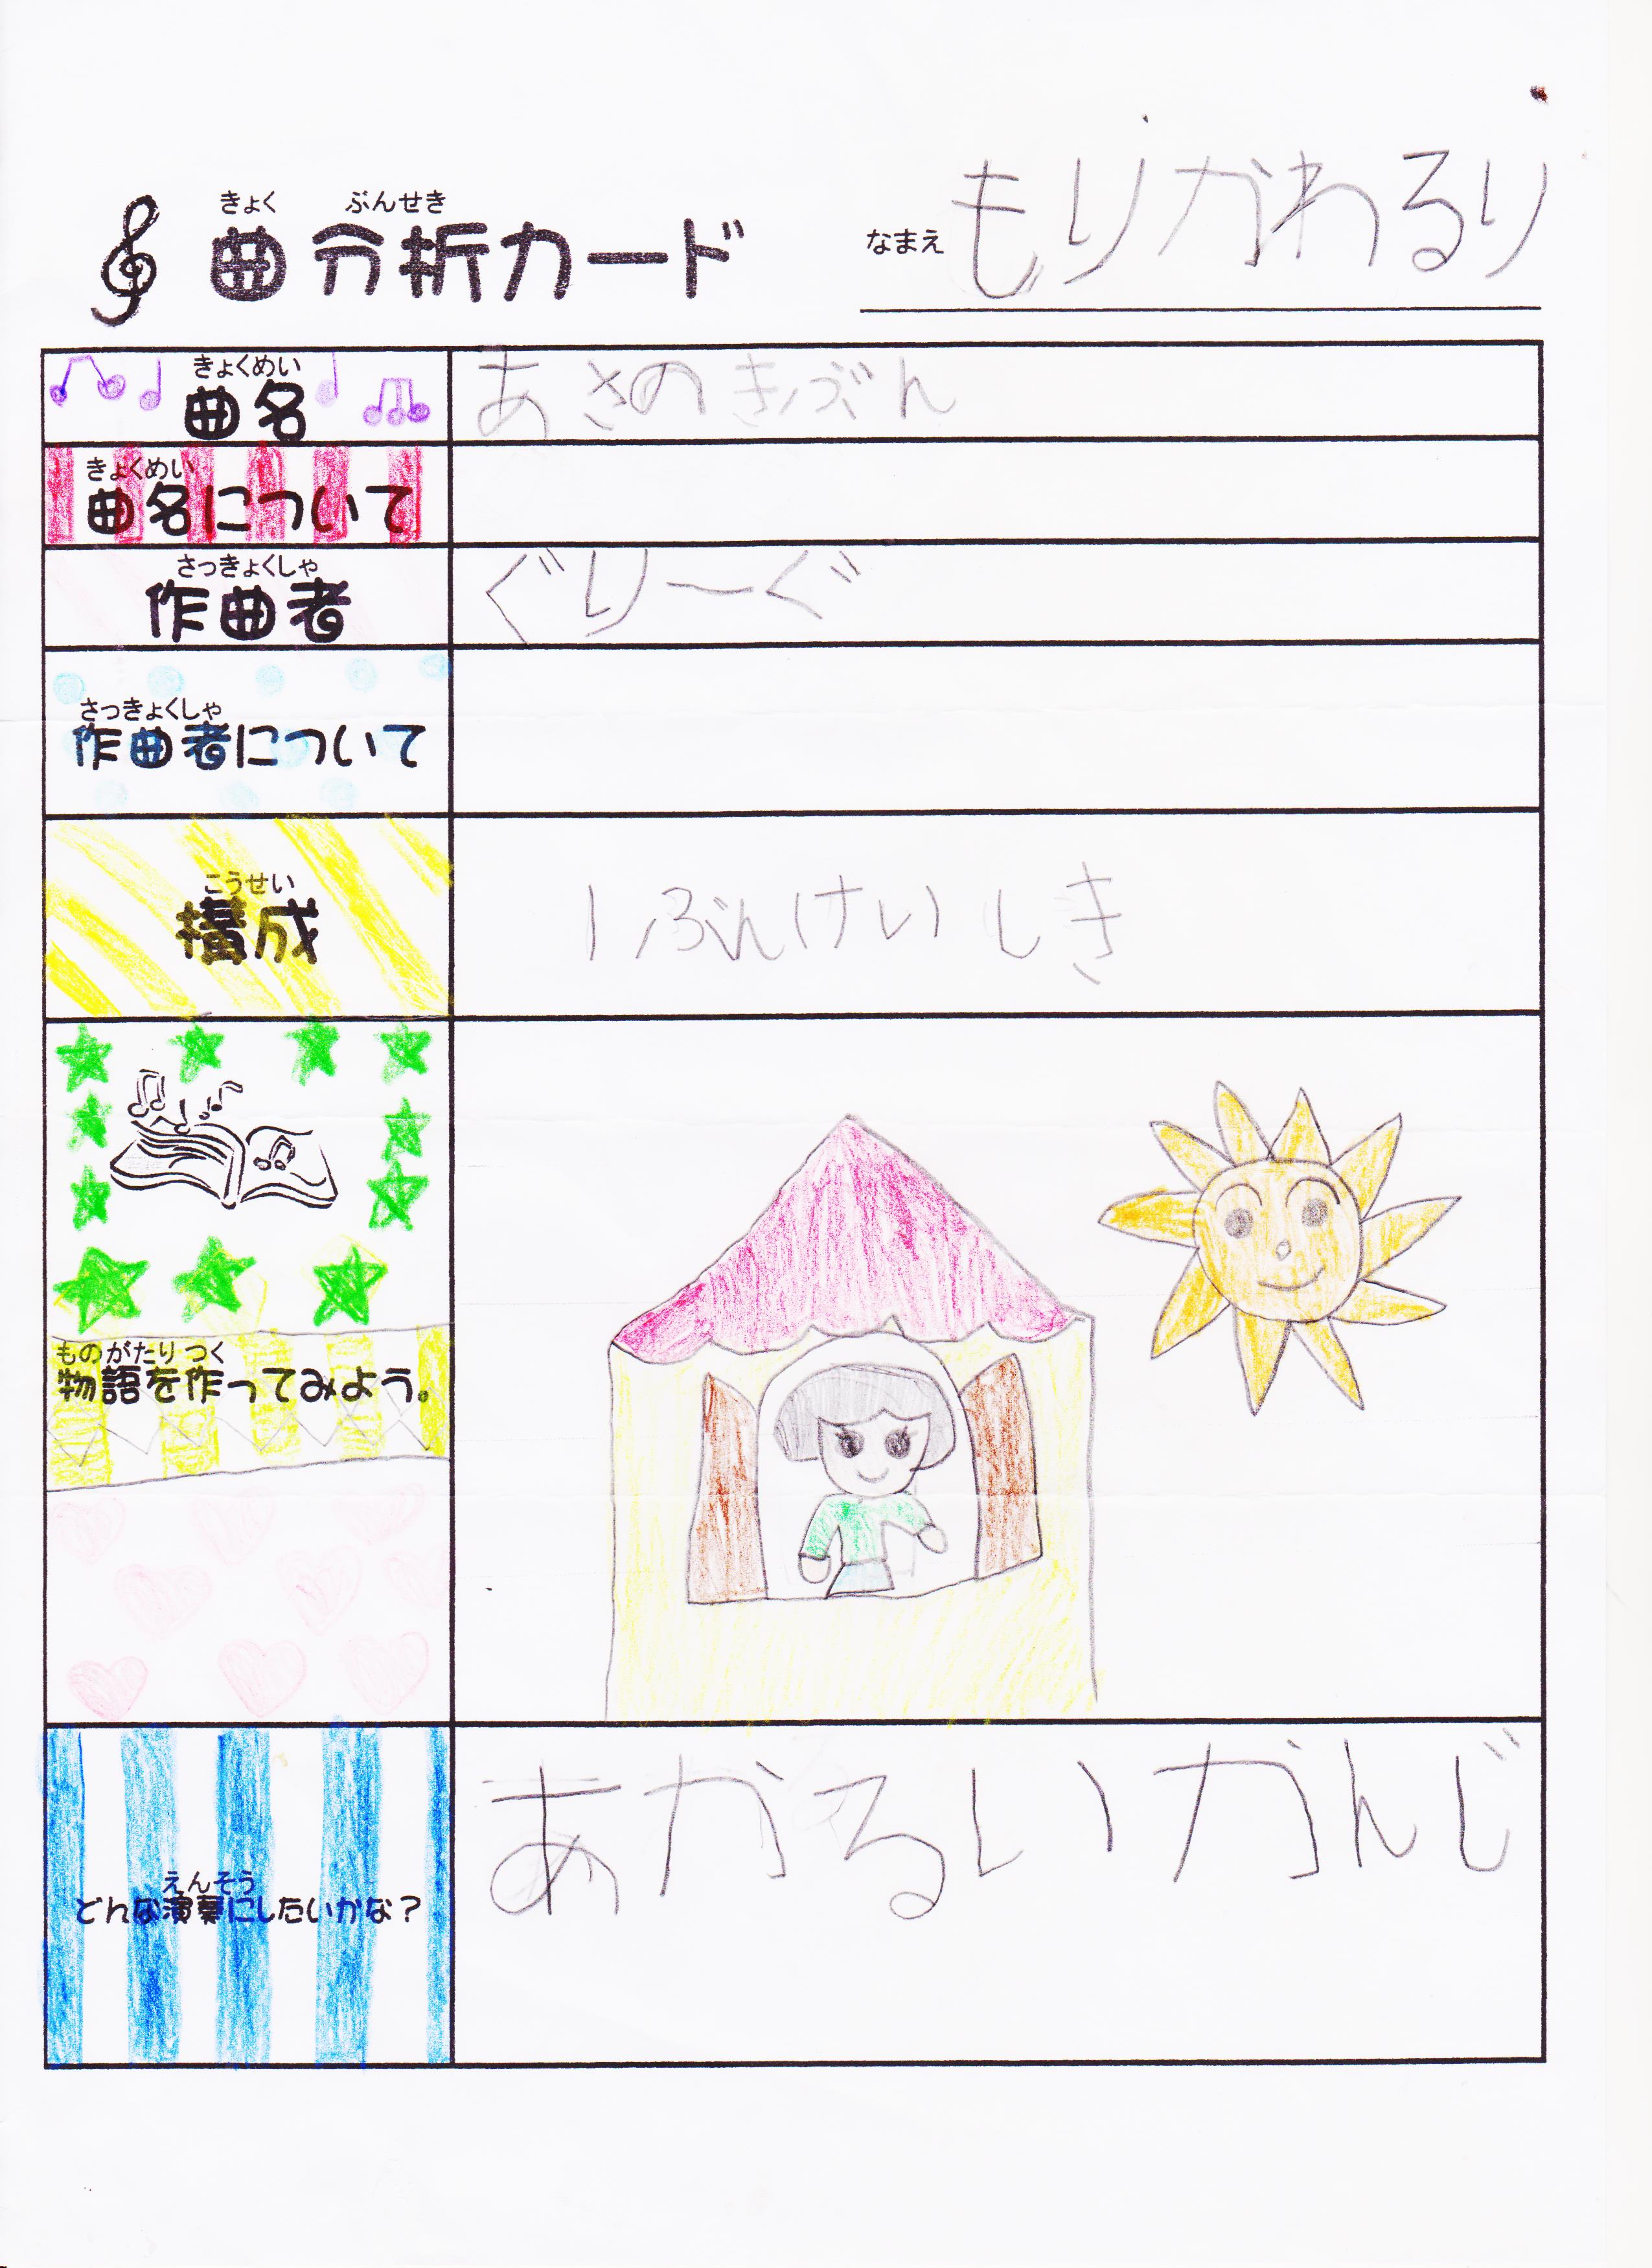 きょく ぶんせき
曲分析カード
なまえ もりかわるり
きょくめい
曲名
あさのきぶん
きょくめい
曲名について
さっきょくしゃ
作曲者
ぐりーぐ
さっきょくしゃ
作曲者について
こうせい
構成
1ぶんけいしき
ものがたり つく
物語を作ってみよう。
えんそう
どんな演奏にしたいかな?
あかるいかんじ